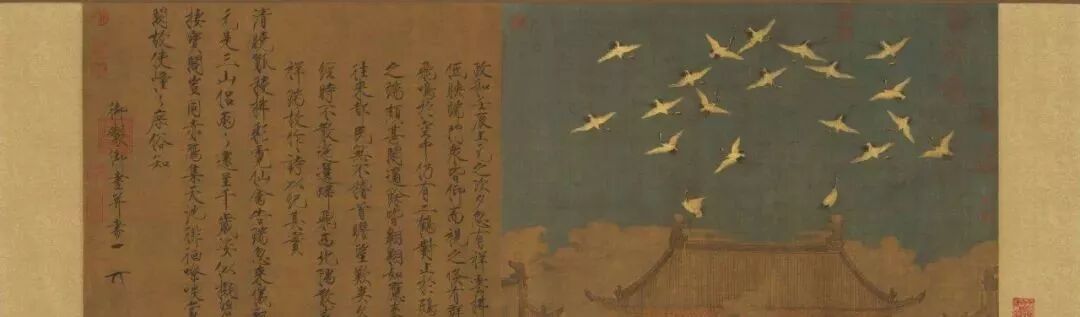 政和壬辰上元之次夕忽有祥雲拂
低映端門眾皆仰而視之倏有群
飛鳴於空中仍有二鶴對止於鴟
之端頗甚閒適餘皆翱翔如應奏
往來都民無不稽首瞻望歎異久
經時不散迤邐歸飛西北隅散
祥瑞故作詩以紀其實
清曉觚稜拂彩霓仙禽告瑞忽來儀
元是三山侶兩〻還呈千歲姿似擬
棲寶閣豈同赤鴈集天池徘徊嘹唳
闕故使憧〻庶俗知
御製御畫并書